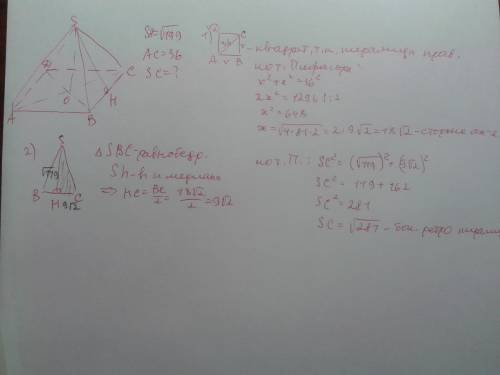 S
A
B
C
O
H
SH = √119
AC = 36
SC = ?
1)
36
C
A x B
x
- квадрат, т.к. пирамида прав.
по т. Пифагора:
x² + x² = 36²
2x² = 1296 | : 2
x² = 648
x = √4·81·2 = 2·9√2 = 18√2 - сторона
2)
S
√119
B
H
C
9√2
Δ SBC - равнобедр.
Sh - h и медиана
⇒ HC = BC/2 = 18√2/2 = 9√2
по т. П.: SC² = (√119)² + (9√2)²
SC² = 119 + 162
SC² = 281
SC = √281 - бок. ребро